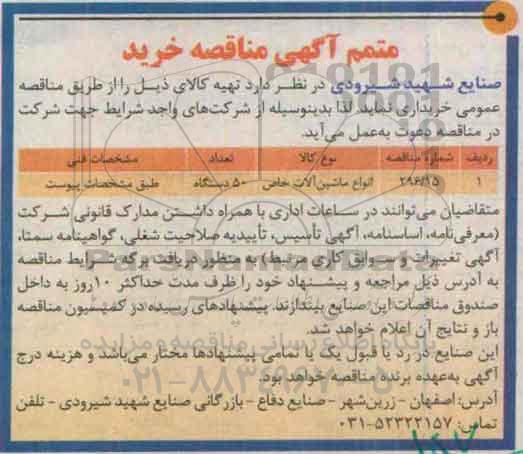 متمم آگهی مناقصه خرید
صنایع شهید شیرودی در نظر دارد تهیه کالای ذیل را از طریق مناقصه
عمومی خریداری نماید. لذا بدینوسیله از شرکت‌های واجد شرایط جهت شرکت
در مناقصه دعوت به‌عمل می‌آید.
ردیف شماره مناقصه نوع کالا تعداد مشخصات فنی
۱ ۲۹۶/۱۵ انواع ماشین‌آلات خاص ۵۰ دستگاه طبق مشخصات پیوست
متقاضیان می‌توانند در ساعات اداری با همراه داشتن مدارک قانونی شرکت
(معرفی‌نامه، اساسنامه، آگهی تأسیس، تأییدیه صلاحیت شغلی، گواهینامه سمتا،
آگهی تغییرات و سوابق کاری مرتبط) به منظور دریافت برگه شرایط مناقصه
به آدرس ذیل مراجعه و پیشنهاد خود را ظرف مدت حداکثر ۱۰ روز به داخل
صندوق مناقصات این صنایع بیندازند. پیشنهادهای رسیده در کمیسیون مناقصه
باز و نتایج آن اعلام خواهد شد.
این صنایع در رد یا قبول یک یا تمامی پیشنهادها مختار می‌باشد و هزینه درج
آگهی به‌عهده برنده مناقصه خواهد بود.
آدرس: اصفهان - زرین‌شهر - صنایع دفاع - بازرگانی صنایع شهید شیرودی - تلفن
تماس: ۵۲۳۲۲۱۵۷-۰۳۱
ParsNamadData
پایگاه اطلاع رسانی مناقصه و مزایده
۰۲۱-۸۸۳۴۹۶۷۰-۵